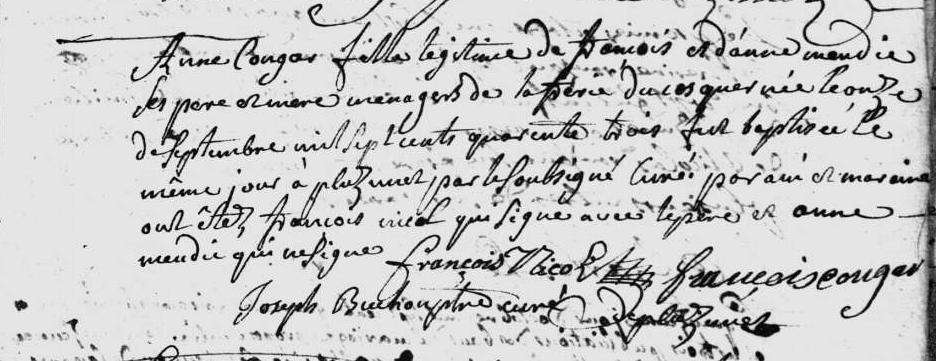 Anne Congar fille legitime de françois et d'anne mendic
ses pere et mere menagers de la née le onze
de septembre mil sept cents quarente trois fut baptisée le
même jour à pluzunet par le soubsigné curé parain et maraine
ont étéz françois nicol qui signe avec le père et anne
mendic qui ne signe françois Nicol françois congar
Joseph ptre curé de pluzunet